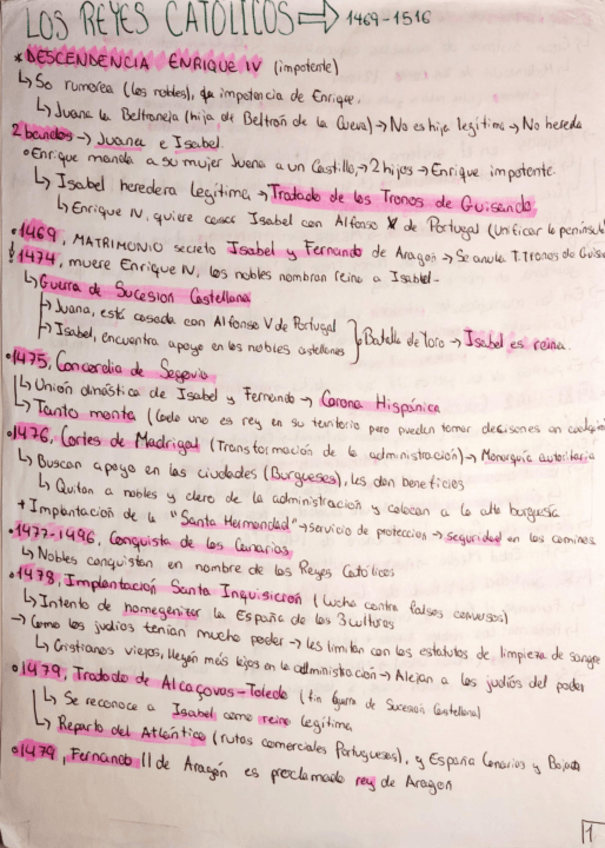 LOS REYES CATÓLICOS ⇒ 1469-1516
* DESCENDENCIA ENRIQUE IV (impotente)
↳ Se rumorea (los nobles), que impotencia de Enrique.
↳ Juana la Beltraneja (hija de Beltrán de la Cueva) → No es hija legítima → No hereda
2 bandos → Juana e Isabel.
• Enrique manda a su mujer Juana a un Castillo, → 2 hijos → Enrique impotente.
↳ Isabel heredera legítima → Tratado de los Tronos de Guisando
↳ Enrique IV, quiere casar Isabel con Alfonso V de Portugal (Unificar la península
• 1469, MATRIMONIO secreto Isabel y Fernando de Aragón → Se anula T. Tronos de Guisa
1474, muere Enrique IV, los nobles nombran reina a Isabel.
↳ Guerra de Sucesion Castellana
↳ Juana, está casada con Alfonso V de Portugal
↳ Isabel, encuentra apoyo en los nobles castellanos } Batalla de Toro → Isabel es reina.
• 1475, Concordia de Segovia
↳ Unión dinástica de Isabel y Fernando → Corona Hispánica
↳ Tanto monta (Cada uno es rey en su territorio pero pueden tomar decisones en
• 1476, Cortes de Madrigal (Transformación de la administración) → Monarquía autoritaria
↳ Buscan apoyo en las ciudades (Burgueses), les dan beneficios
↳ Quitan a nobles y clero de la administración y colocan a la alta burguesía
+ Implantación de la "Santa Hermandad" → servicio de proteccion → seguridad en los caminos
• 1477-1496, Conquista de las Canarias
↳ Nobles conquistan en nombre de los Reyes Católicos
• 1478, Implantación Santa Inquisición (lucha contra falsos conversos)
↳ Intento de homegenizar la España de las 3 culturas
→ Como los judíos tenían mucho poder → les limitan con los estatutos de limpieza de sangre
↳ Cristianos viejos, llegan más lejos en la administración → Alejan a los judíos del poder
• 1479, Tratado de Alcaçovas-Toledo (fin Guerra de Sucesión Castellana)
↳ Se reconoce a Isabel como reina legítima
↳ Reparto del Atlántico (rutas comerciales Portuguesas), y España Canarias y
• 1479, Fernando II de Aragón es proclamado rey de Aragón
1